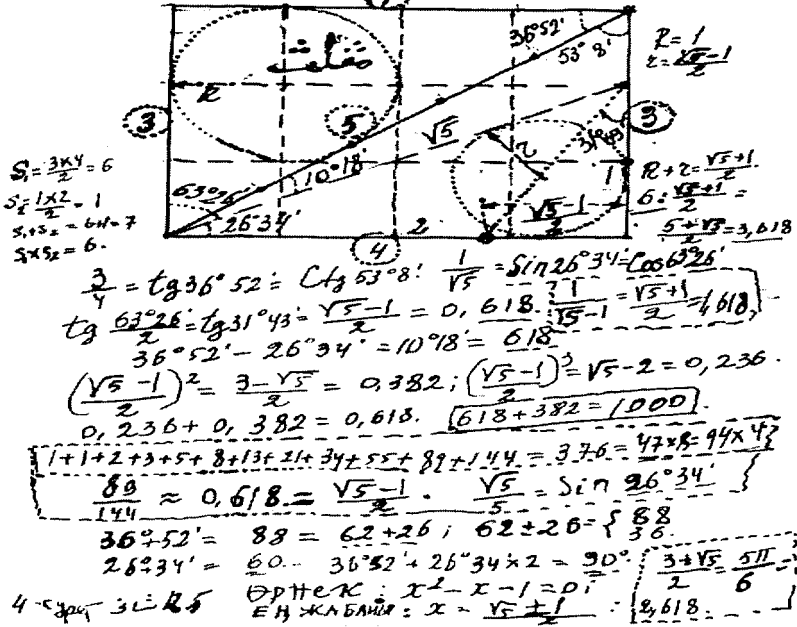 36°52'
53° 8'
R = 1
r = (√5-1)/2
R
3
5
√5
r
31°43'
3
S₁ = 3×4/2 = 6
10°18'
1
R+r = (√5+1)/2
S₂ = 1×2/2 = 1
63°26'
6 : (√5+1)/2 =
S₁+S₂ = 6+1 = 7
26°34'
2
(√5-1)/2
(5+√5)/2 = 3,618
S₁×S₂ = 6.
4
3/4 = tg36°52' = Ctg53°8'. 1/√5 = Sin26°34' = Cos63°26'
tg 63°26'/2 = tg31°43' = (√5-1)/2 = 0,618. (√5+1)/2 = 1,618
36°52' - 26°34' = 10°18' = 618
((√5-1)/2)² = (3-√5)/2 = 0,382; ((√5-1)/2)³ = √5-2 = 0,236.
0,236 + 0,382 = 0,618. 618+382=1000.
1+1+2+3+5+8+13+21+34+55+89+144 = 376 = 47×8 = 94×4
89/144 ≈ 0,618 = (√5-1)/2. √5/5 = Sin 26°34'
36°+52' = 88 = 62+26; 62±26 = { 88 36.
26°+34' = 60.. 36°52' + 26°34'×2 = 90°.
(3+√5)/2 = 5π/6 = 2,618.
ӨРНЕК : x² - x - 1 = 0;
ЕҢ ЖАБАЙЫ : x = (√5±1)/2